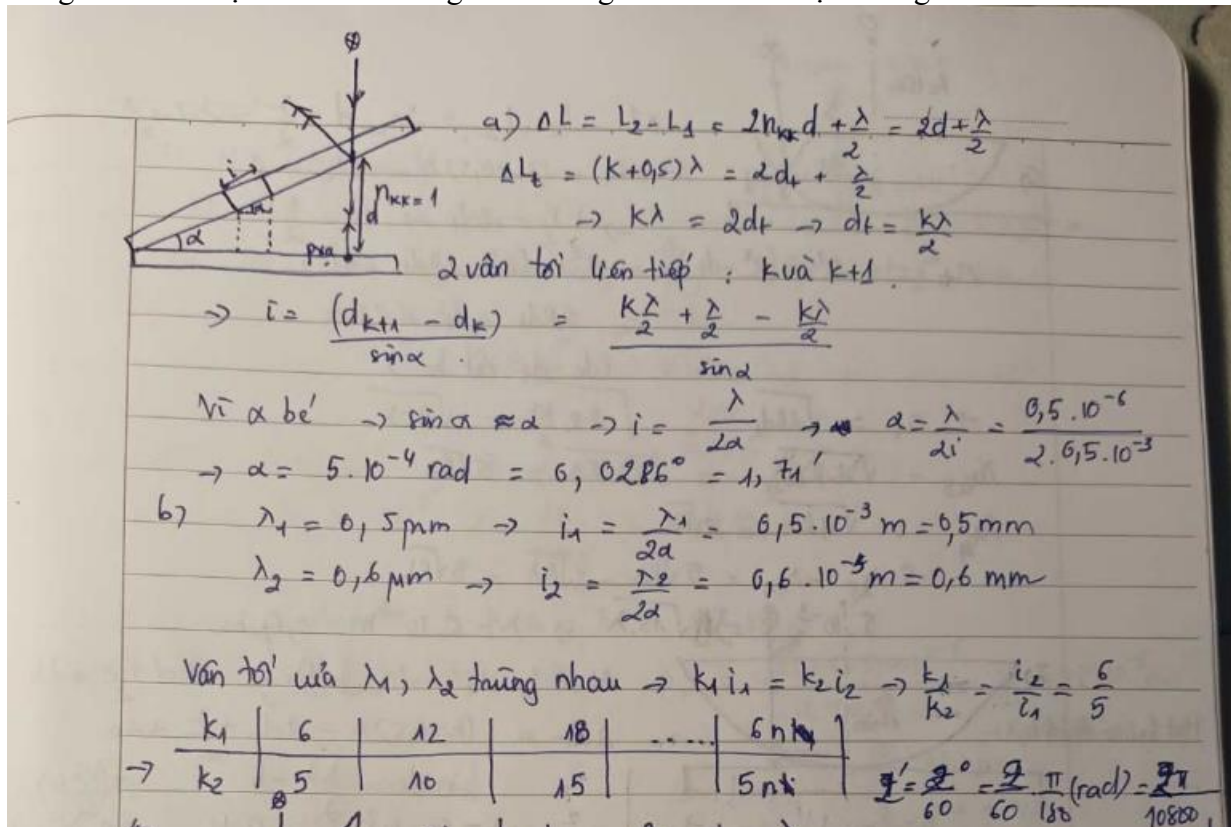 a) ΔL = L₂ - L₁ = 2n_kk d + λ/2 = 2d + λ/2
ΔL_t = (k+0,5)λ = 2d_t + λ/2
→ kλ = 2d_t → d_t = kλ/2
i
α
α
d
n_kk = 1
2 vân tối liên tiếp : k và k+1.
→ i = (d_k+1 - d_k)/sinα = (kλ/2 + λ/2 - kλ/2)/sinα
Vì α bé → sin α ≈ α → i = λ/2α → α = λ/2i = 0,5.10⁻⁶/2.0,5.10⁻³
→ α = 5.10⁻⁴ rad = 0,0286° = 1,71'
b) λ₁ = 0,5μm → i₁ = λ₁/2α = 0,5.10⁻³ m = 0,5mm
λ₂ = 0,6μm → i₂ = λ₂/2α = 0,6.10⁻³ m = 0,6 mm
Vân tối của λ₁, λ₂ trùng nhau → k₁i₁ = k₂i₂ → k₁/k₂ = i₂/i₁ = 6/5
k₁ | 6 | 12 | 18 | ..... | 6n
→ k₂ | 5 | 10 | 15 | | 5n